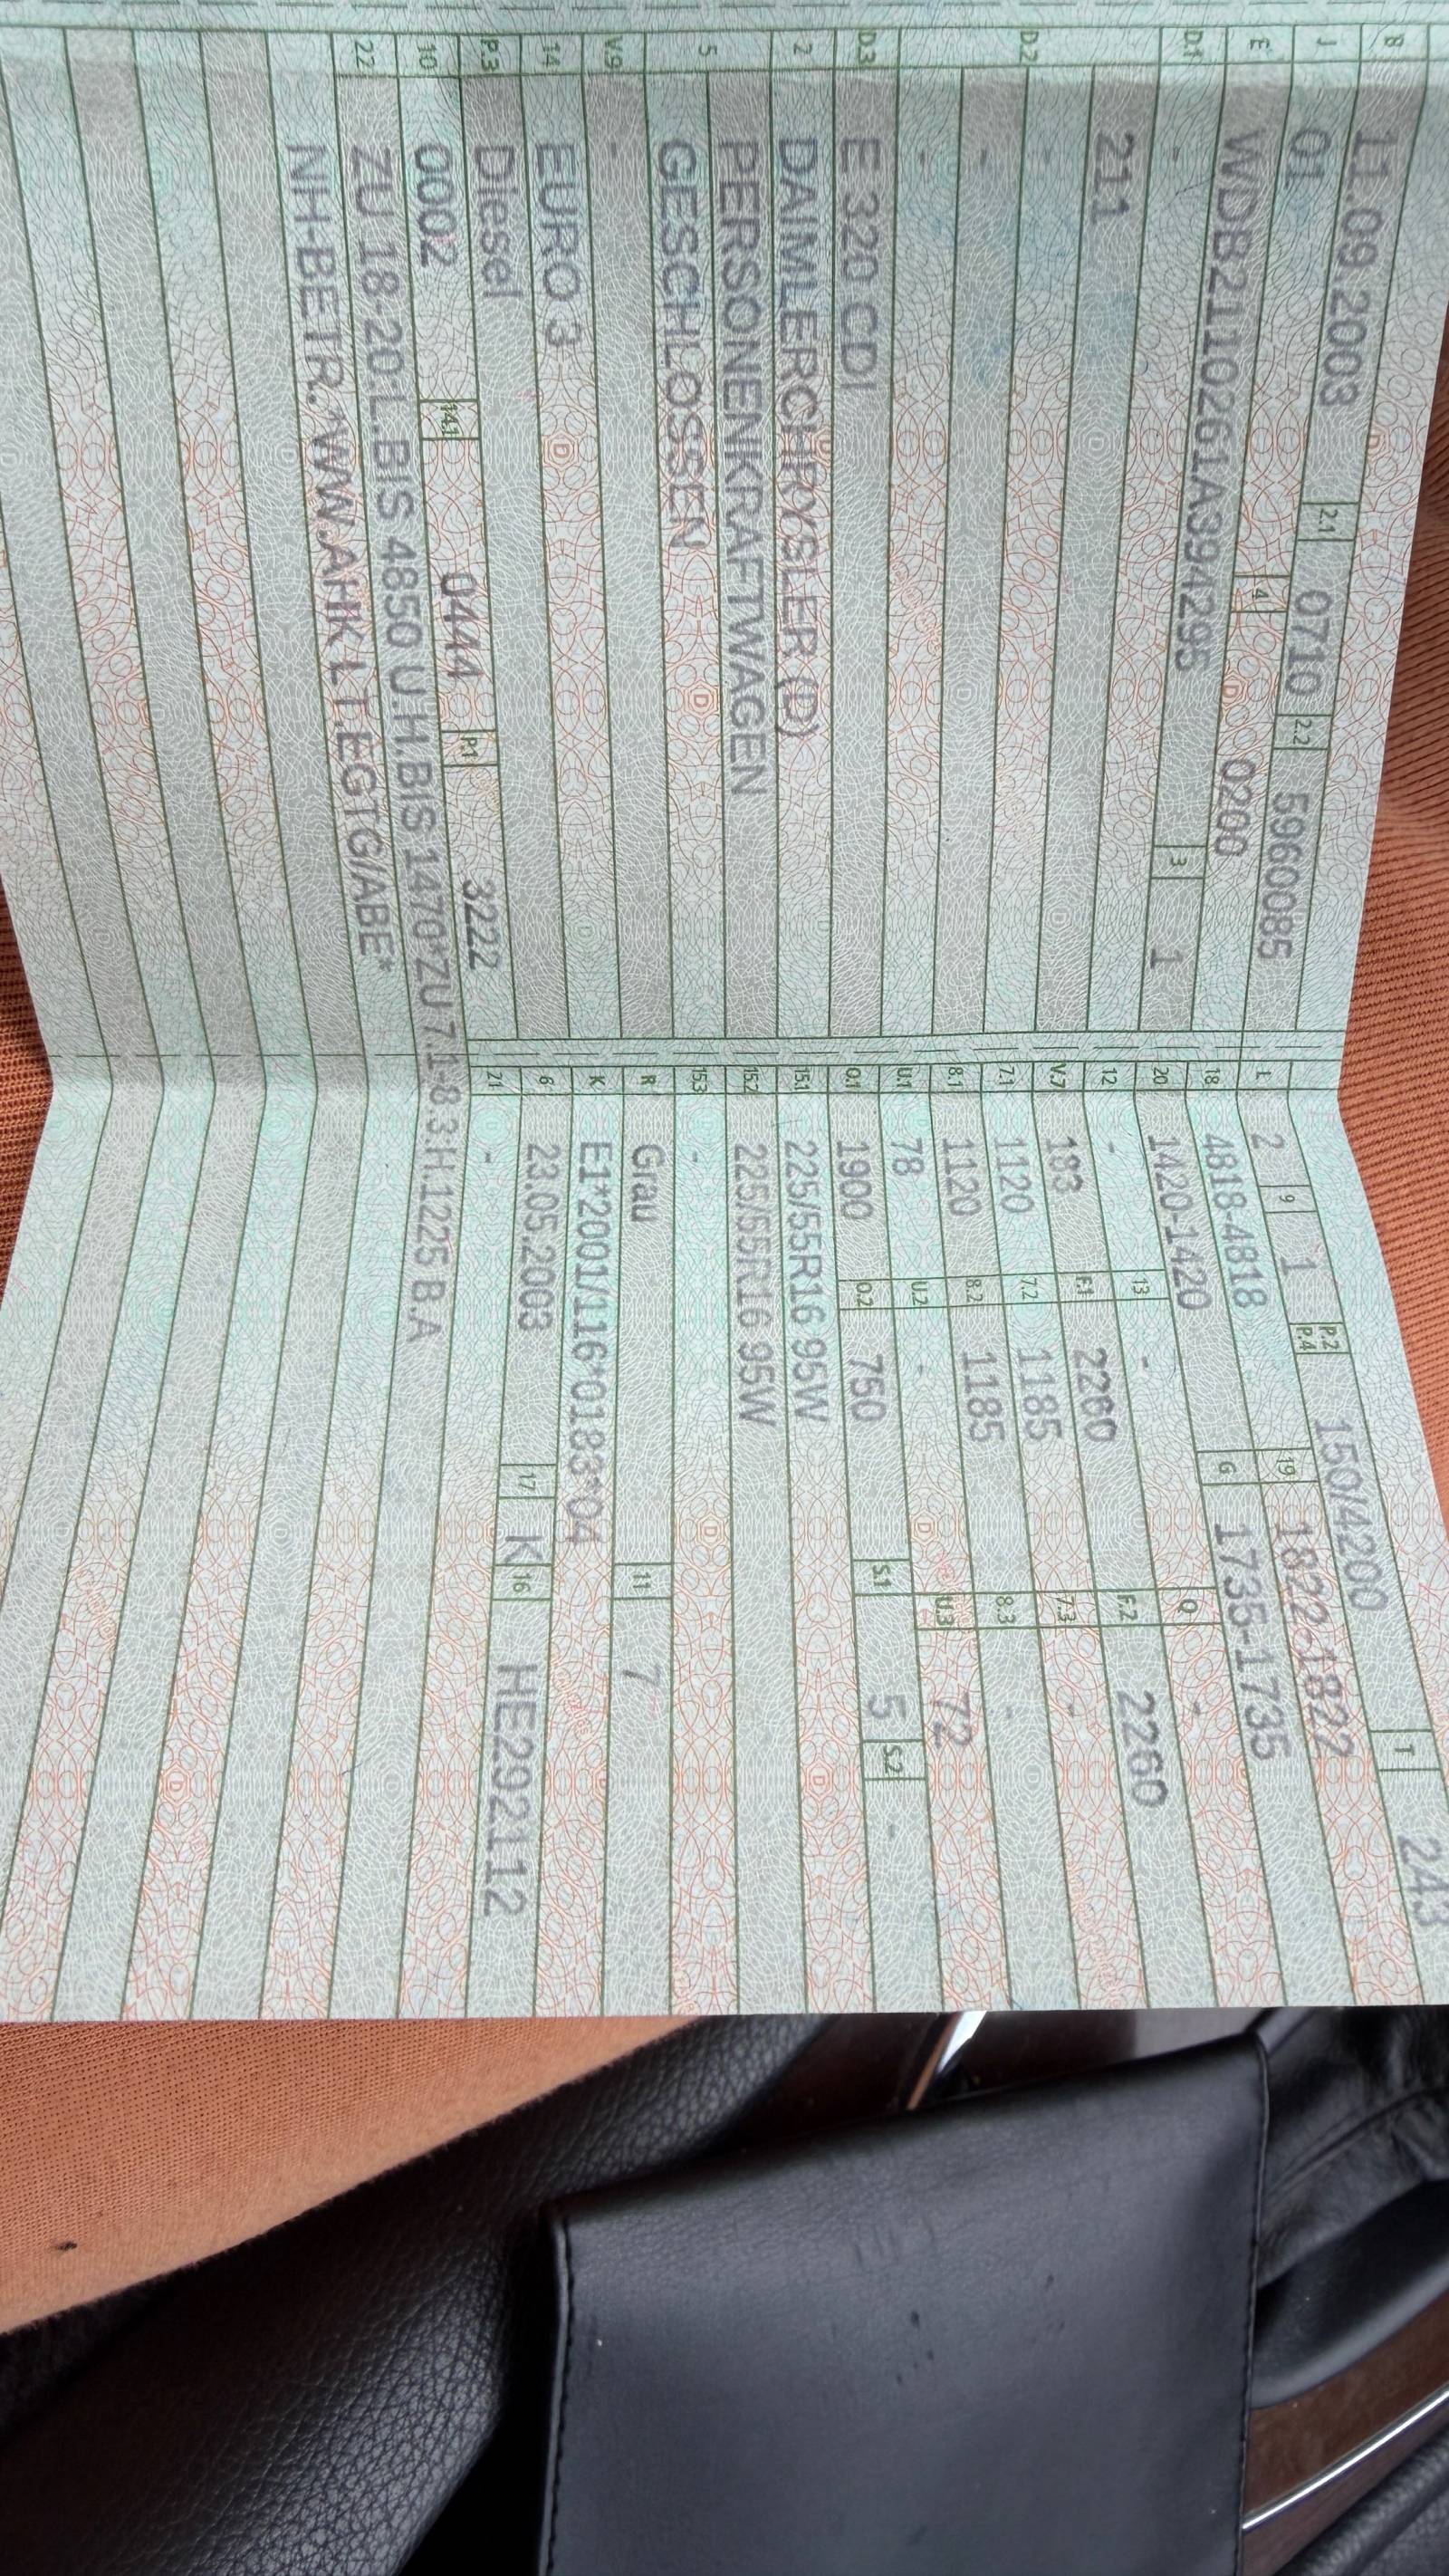 B 11.09.2003 2.1 0710 2.2 5960085
J 01 4 0200
E WDB2110261A394295 3 1
D.1 -
211
D.2 -
-
-
D.3 E 320 CDI
2 DAIMLERCHRYSLER (D)
5 PERSONENKRAFTWAGEN
GESCHLOSSEN
V.9 -
14 EURO 3
P.3 Diesel
10 0002 14.1 0444 P.1 3222
22 ZU 18-20:L.BIS 4850 U.H.BIS 1470*ZU 7.1-8.3:H.1225 B.A
NH-BETR.*WW.AHK LT.EGTG/ABE*
L 2 9 1 P.2 P.4 150/4200 T 243
18 4818-4818 19 1822-1822
20 1420-1420 G 1735-1735
12 - 13 - Q -
V.7 183 F.1 2260 F.2 2260
7.1 1120 7.2 1185 7.3 -
8.1 1120 8.2 1185 8.3 -
U.1 78 U.2 - U.3 72
O.1 1900 O.2 750 S.1 5 S.2 -
15.1 225/55R16 95W
15.2 225/55R16 95W
15.3 -
R Grau 11 7
K E1*2001/116*0183*04
6 23.05.2003 17 K 16 HE292112
21 -